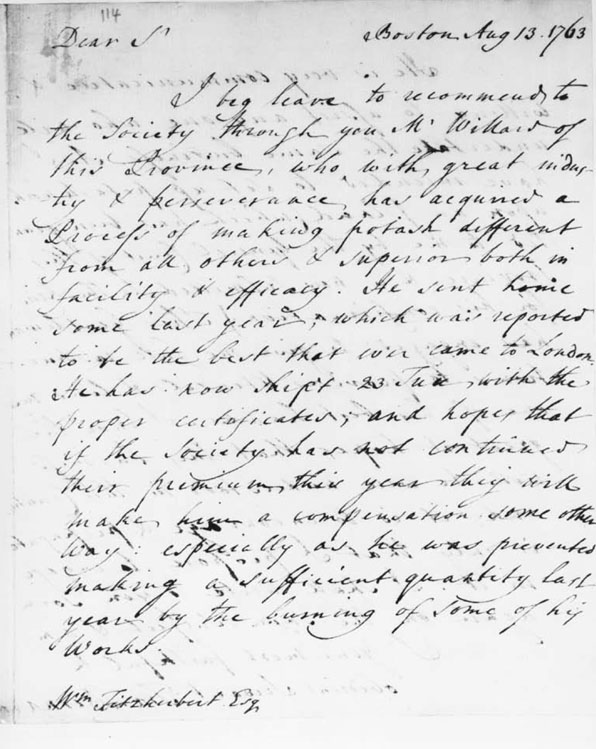 114
Dear Sr
Boston Aug 13. 1763
I beg leave to recommend to
the Society through you Mr Willard of
this Province, who with great indus-
try & perseverance has acquired a
Process of making potash different
from all others & superior both in
facility & efficacy. He sent home
some last year, which was reported
to be the best that ever came to London.
He has now shipt 23 Tun with the
proper certificates; and hopes that
if the Society has not continued
their premium this year they will
make him a compensation some other
way: especially as he was prevented
making a sufficient quantity last
year by the burning of some of his
Works.
Wm Fitzherbert Esq